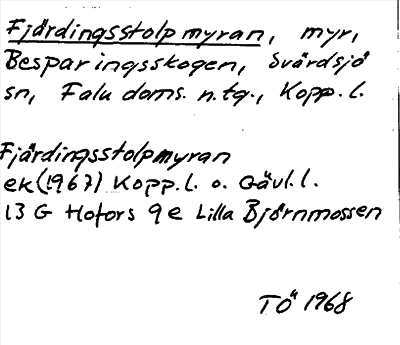 Fjärdingsstolpmyran, myr,
Besparingsskogen, Svärdsjö
sn, Falu doms. n.tg., Kopp. l.
Fjärdingsstolpmyran
ek (1967) Kopp. l. o. Gävl. l.
13 G Hofors 9 e Lilla Björnmossen
TÖ 1968